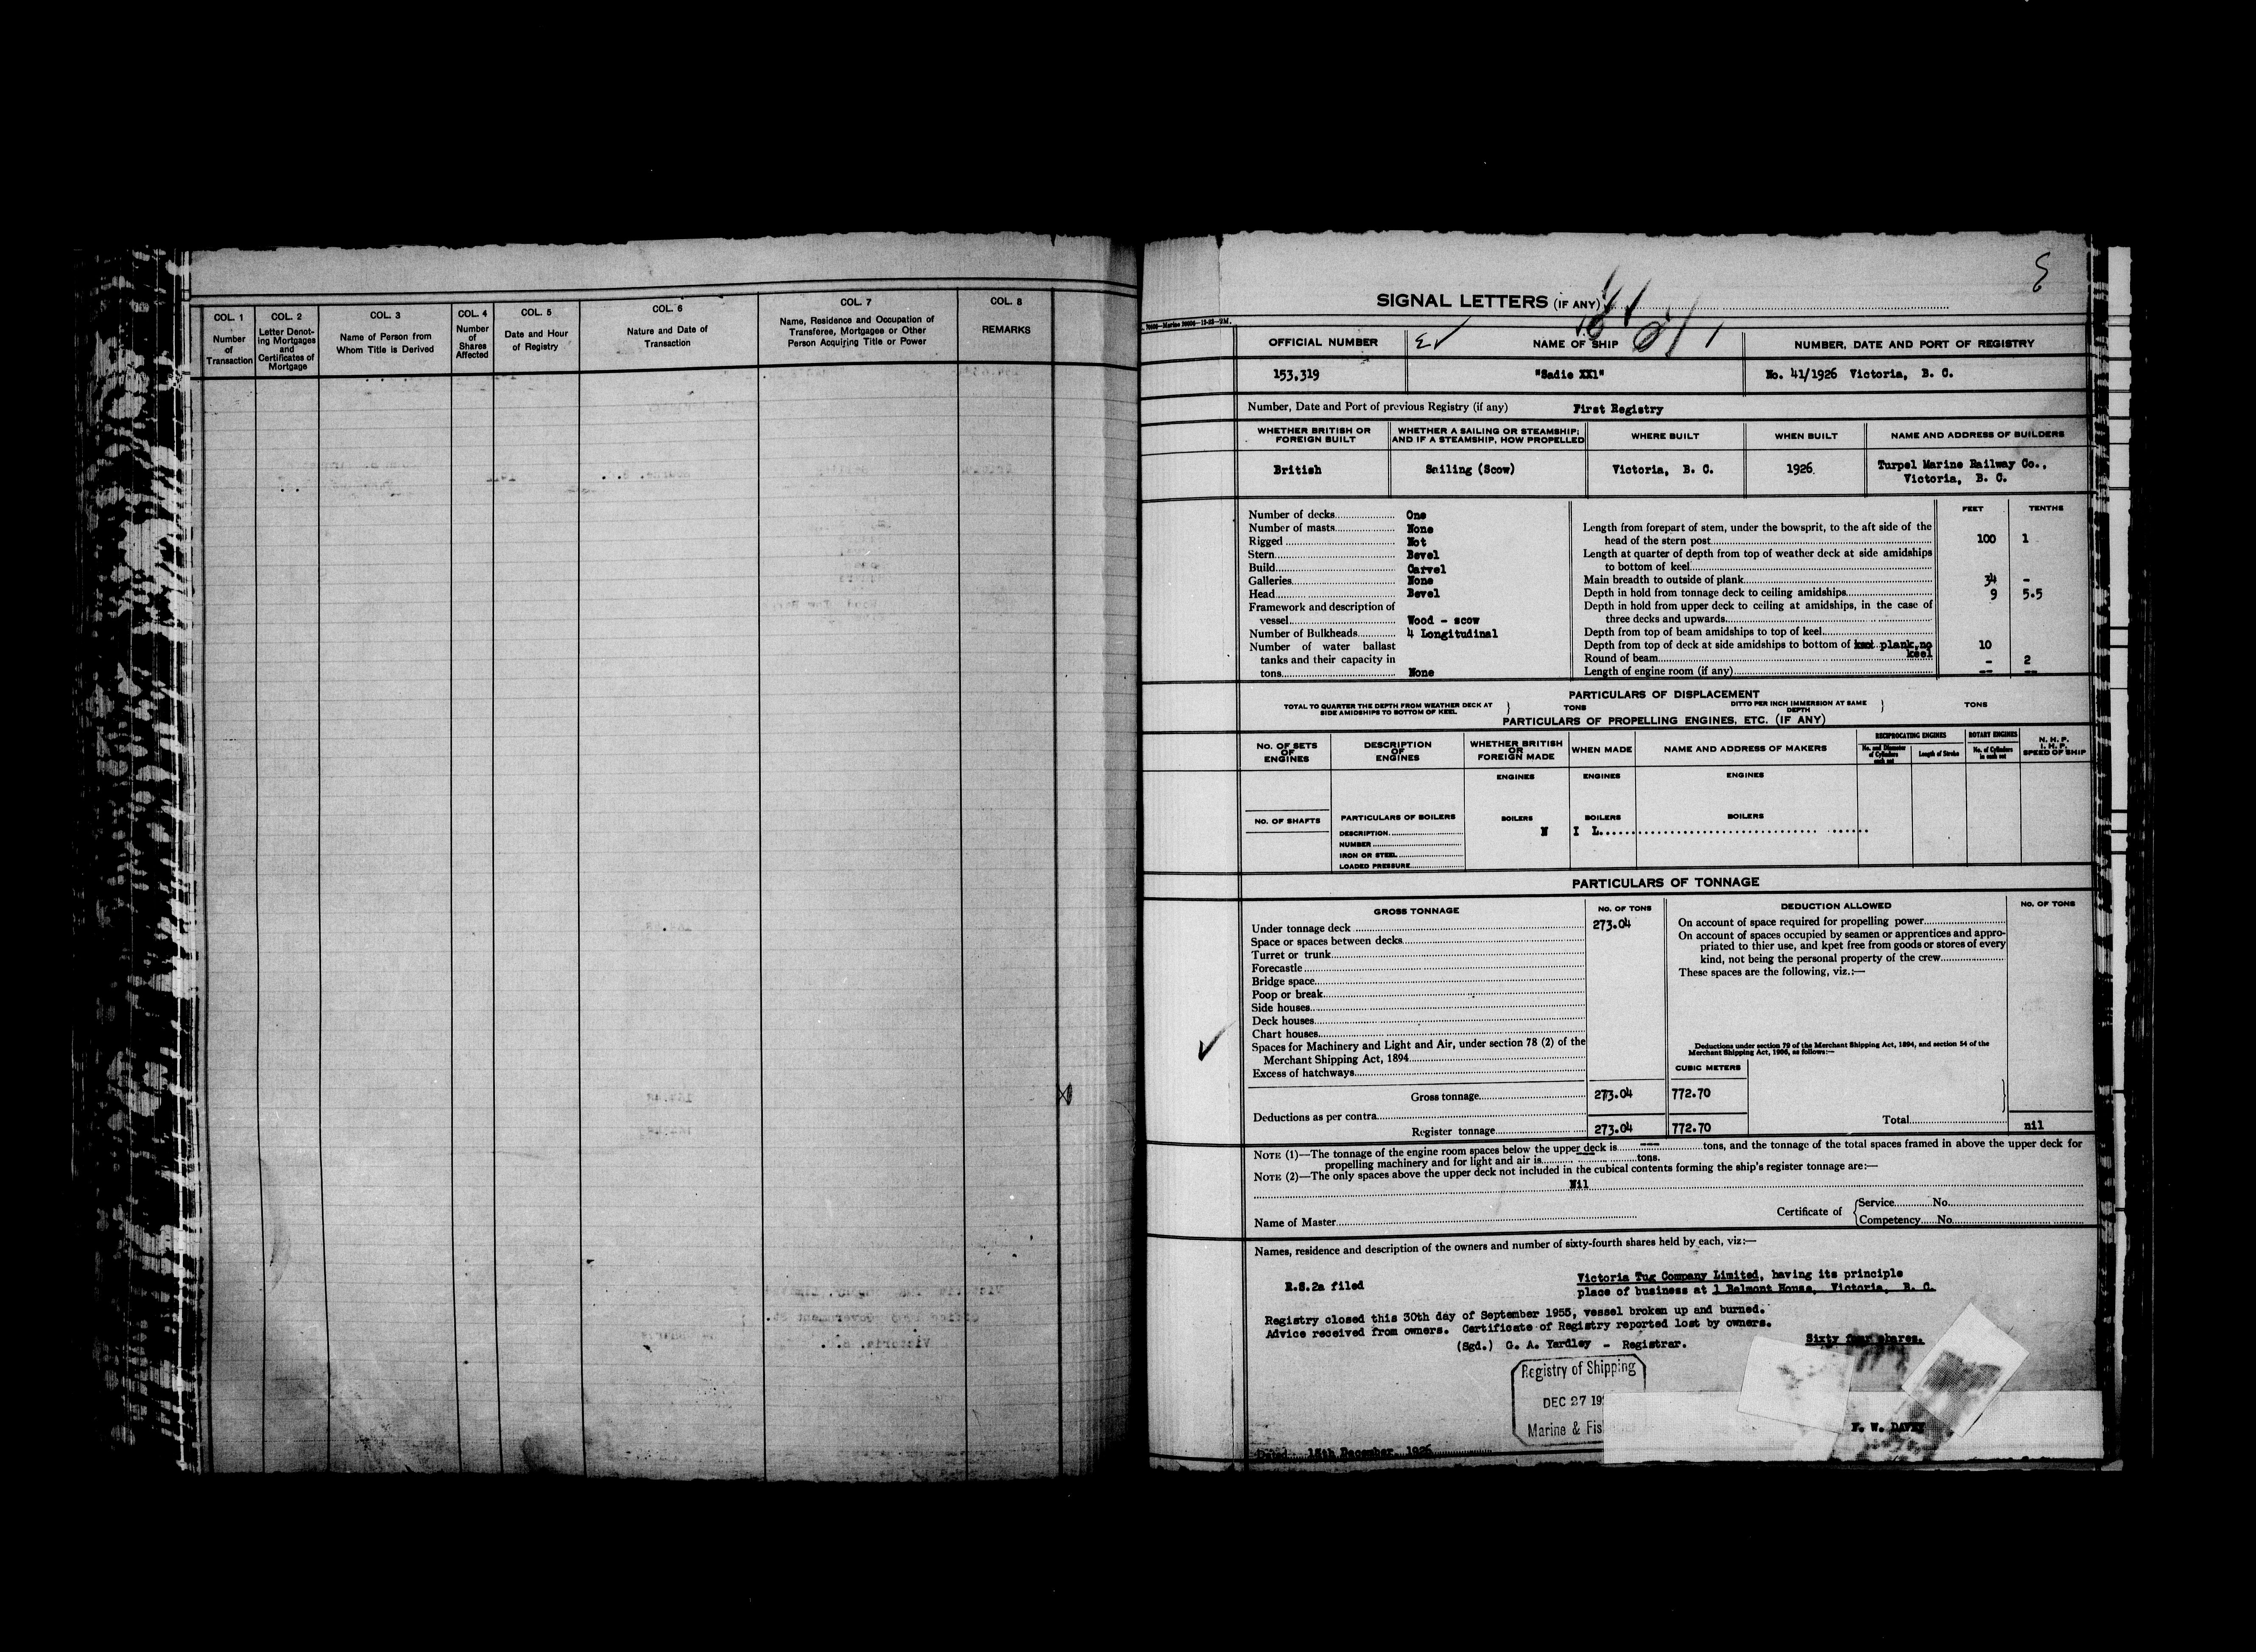 COL. 1
Number
of
Transaction
COL. 2
Letter Denot-
ing Mortgages
and
Certificates of
Mortgage
COL. 3
Name of Person from
Whom Title is Derived
COL. 4
Number
of
Shares
Affected
COL. 5
Date and Hour
of Registry
COL. 6
Nature and Date of
Transaction
COL. 7
Name, Residence and Occupation of
Transferee, Mortgagee or Other
Person Acquiring Title or Power
COL. 8
REMARKS
SIGNAL LETTERS (IF ANY)
OFFICIAL NUMBER
NAME OF SHIP
NUMBER, DATE AND PORT OF REGISTRY
153,319
"Sadie XX1"
No. 41/1926 Victoria, B. C.
Number, Date and Port of previous Registry (if any) First Registry
WHETHER BRITISH OR
FOREIGN BUILT
WHETHER A SAILING OR STEAMSHIP;
AND IF A STEAMSHIP, HOW PROPELLED
WHERE BUILT
WHEN BUILT
NAME AND ADDRESS OF BUILDERS
British
Sailing (Scow)
Victoria, B. C.
1926.
Turpel Marine Railway Co.,
Victoria, B. C.
Number of decks One
Number of masts None
Rigged Not
Stern Bevel
Build Carvel
Galleries None
Head Bevel
Framework and description of
vessel Wood - scow
Number of Bulkheads 4 Longitudinal
Number of water ballast
tanks and their capacity in
tons None
FEET TENTHS
Length from forepart of stem, under the bowsprit, to the aft side of the
head of the stern post 100 1
Length at quarter of depth from top of weather deck at side amidships
to bottom of keel
Main breadth to outside of plank 34 -
Depth in hold from tonnage deck to ceiling amidships 9 5.5
Depth in hold from upper deck to ceiling at amidships, in the case of
three decks and upwards
Depth from top of beam amidships to top of keel
Depth from top of deck at side amidships to bottom of plank, no keel 10
Round of beam - 2
Length of engine room (if any) -- --
PARTICULARS OF DISPLACEMENT
TOTAL TO QUARTER THE DEPTH FROM WEATHER DECK AT
SIDE AMIDSHIPS TO BOTTOM OF KEEL
TONS
DITTO PER INCH IMMERSION AT SAME
DEPTH
TONS
PARTICULARS OF PROPELLING ENGINES, ETC. (IF ANY)
NO. OF SETS
OF
ENGINES
DESCRIPTION
OF
ENGINES
WHETHER BRITISH
OR
FOREIGN MADE
WHEN MADE
NAME AND ADDRESS OF MAKERS
RECIPROCATING ENGINES
No. and Diameter
of Cylinders
each set
Length of Stroke
ROTARY ENGINES
No. of Cylinders
in each set
N. H. P.
I. H. P.
SPEED OF SHIP
ENGINES ENGINES ENGINES
NO. OF SHAFTS
PARTICULARS OF BOILERS
BOILERS BOILERS BOILERS
DESCRIPTION N I L
NUMBER
IRON OR STEEL
LOADED PRESSURE
PARTICULARS OF TONNAGE
GROSS TONNAGE
NO. OF TONS
DEDUCTION ALLOWED
NO. OF TONS
Under tonnage deck 273.04
Space or spaces between decks
Turret or trunk
Forecastle
Bridge space
Poop or break
Side houses
Deck houses
Chart houses
Spaces for Machinery and Light and Air, under section 78 (2) of the
Merchant Shipping Act, 1894
Excess of hatchways
On account of space required for propelling power
On account of spaces occupied by seamen or apprentices and appro-
priated to thier use, and kpet free from goods or stores of every
kind, not being the personal property of the crew
These spaces are the following, viz.:—
Deductions under section 79 of the Merchant Shipping Act, 1894, and section 54 of the
Merchant Shipping Act, 1906, as follows:—
CUBIC METERS
Gross tonnage 273.04 772.70
Deductions as per contra
Total nil
Register tonnage 273.04 772.70
NOTE (1)—The tonnage of the engine room spaces below the upper deck is --- tons, and the tonnage of the total spaces framed in above the upper deck for
propelling machinery and for light and air is tons.
NOTE (2)—The only spaces above the upper deck not included in the cubical contents forming the ship's register tonnage are:—
Nil
Name of Master
Certificate of
Service No.
Competency No.
Names, residence and description of the owners and number of sixty-fourth shares held by each, viz:—
R.S.2a filed
Victoria Tug Company Limited, having its principle
place of business at 1 Belmont House, Victoria, B. C.
Registry closed this 30th day of September 1955, vessel broken up and burned.
Advice received from owners. Certificate of Registry reported lost by owners.
(Sgd.) G. A. Yardley - Registrar.
Sixty four shares.
Registry of Shipping
DEC 27 19
Marine & Fis
F. W. DAVEY
Dated 15th December, 1926